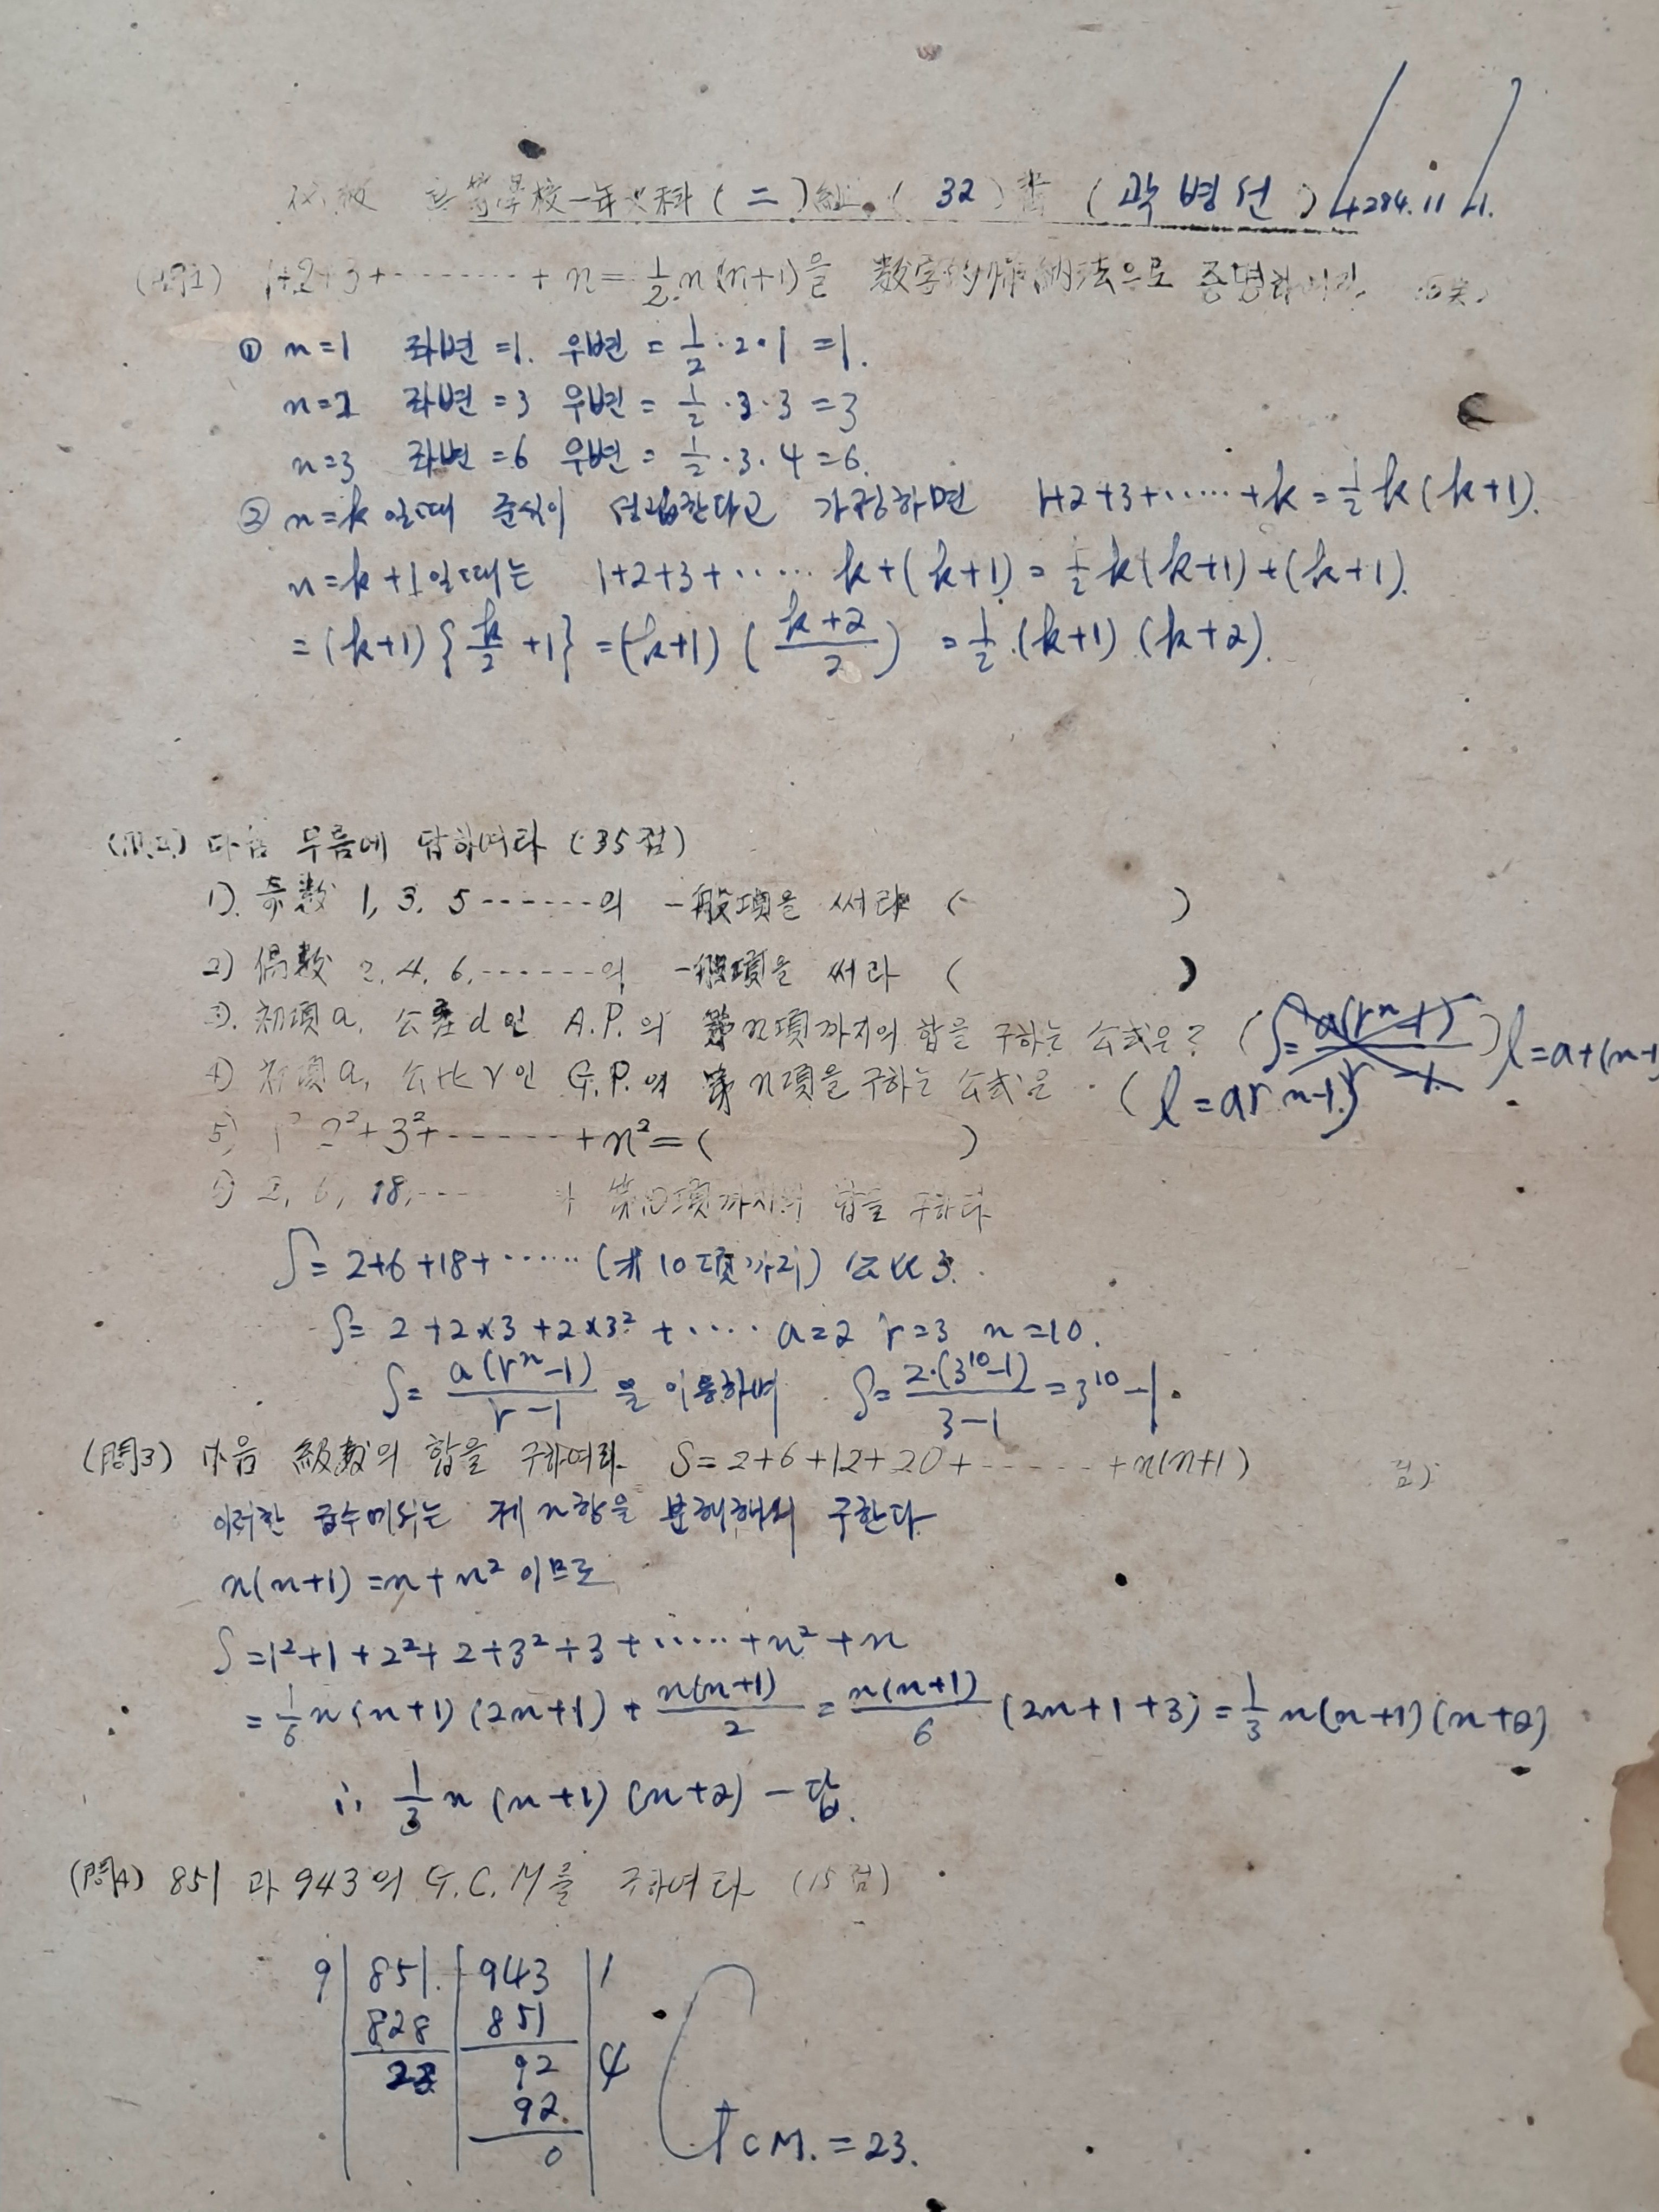 高等學校一年 科 (二) 組 (32) 番 (곽병선) 4284.11.1.
(問1) 1+2+3+‥‥‥+n=½n(n+1)을 数学的帰納法으로 증명하여라
① n=1 좌변=1. 우변=½·2·1=1.
n=2 좌변=3 우변=½·2·3=3
n=3 좌변=6 우변=½·3·4=6.
② n=k일때 준식이 성립한다고 가정하면 1+2+3+‥‥‥+k=½k(k+1).
n=k+1일때는 1+2+3+‥‥‥k+(k+1)=½k(k+1)+(k+1).
=(k+1){k/2+1}=(k+1)((k+2)/2)=½(k+1)(k+2).
(問2) 다음 무름에 답하여라 (35점)
1). 奇数 1, 3, 5‥‥‥의 一般項을 써라 ( )
2) 偶数 2, 4, 6,‥‥‥의 一般項을 써라 ( )
3). 初項a, 公差d인 A.P.의 第n項까지의 합을 구하는 公式은? (S=a(rⁿ-1)/r-1) l=a+(n-1
4) 初項a, 公比r인 G.P.의 第n項을 구하는 公式은 (l=ar n-1)
5) 1² 2²+3²+‥‥‥+n²=( )
6) 2, 6, 18,‥‥ 第10項까지의 합을 구하라
S=2+6+18+‥‥‥(才10項까지) 公比3.
S=2+2×3+2×3²+‥‥ a=2 r=3 n=10.
S=a(rⁿ-1)/r-1 을 이용하며 S=2·(3¹⁰-1)/3-1=3¹⁰-1.
(問3) 다음 級数의 합을 구하여라 S=2+6+12+20+‥‥‥+n(n+1) 점)
이러한 급수에서는 제n항을 분해해서 구한다
n(n+1)=n+n² 이므로
S=1²+1+2²+2+3²+3+‥‥‥+n²+n
=1/6 n(n+1)(2n+1)+n(n+1)/2=n(n+1)/6 (2n+1+3)=1/3 n(n+1)(n+2)
∴ 1/3 n(n+1)(n+2)-답.
(問4) 851과 943의 G.C.M를 구하여라 (15점)
9 851. 943 1
828 851
23 92 4
92.
0
CM.=23.